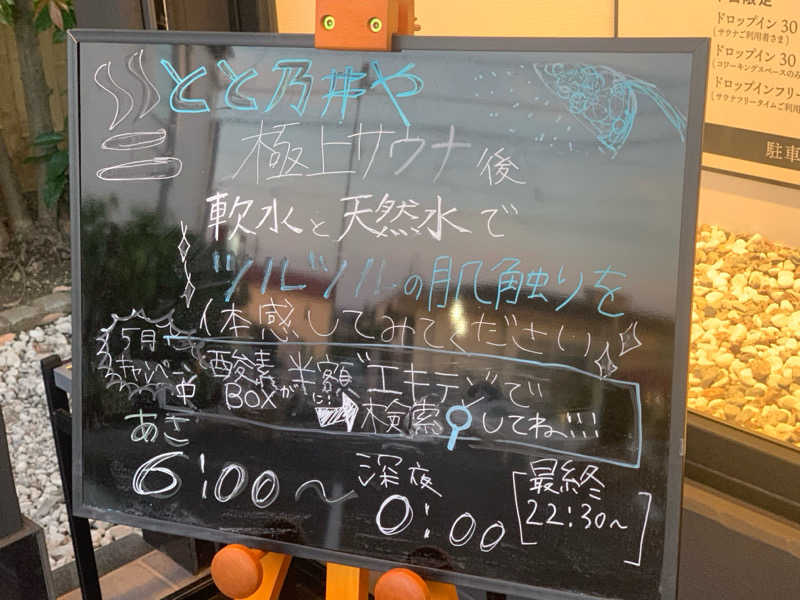 とと乃井や
極上サウナ後
軟水と天然水で
ツルツルの肌触りを
体感してみてください
5月キャンペーン中
酸素BOXが半額に!!
"エキテン"で
検索してね!!!
あさ
6:00〜深夜0:00
[最終22:30〜]
ドロップイン 30
(サウナご利用者さま)
ドロップイン 30
(コワーキングスペースのみ
ドロップインフリー
(サウナフリータイムご利用
駐車